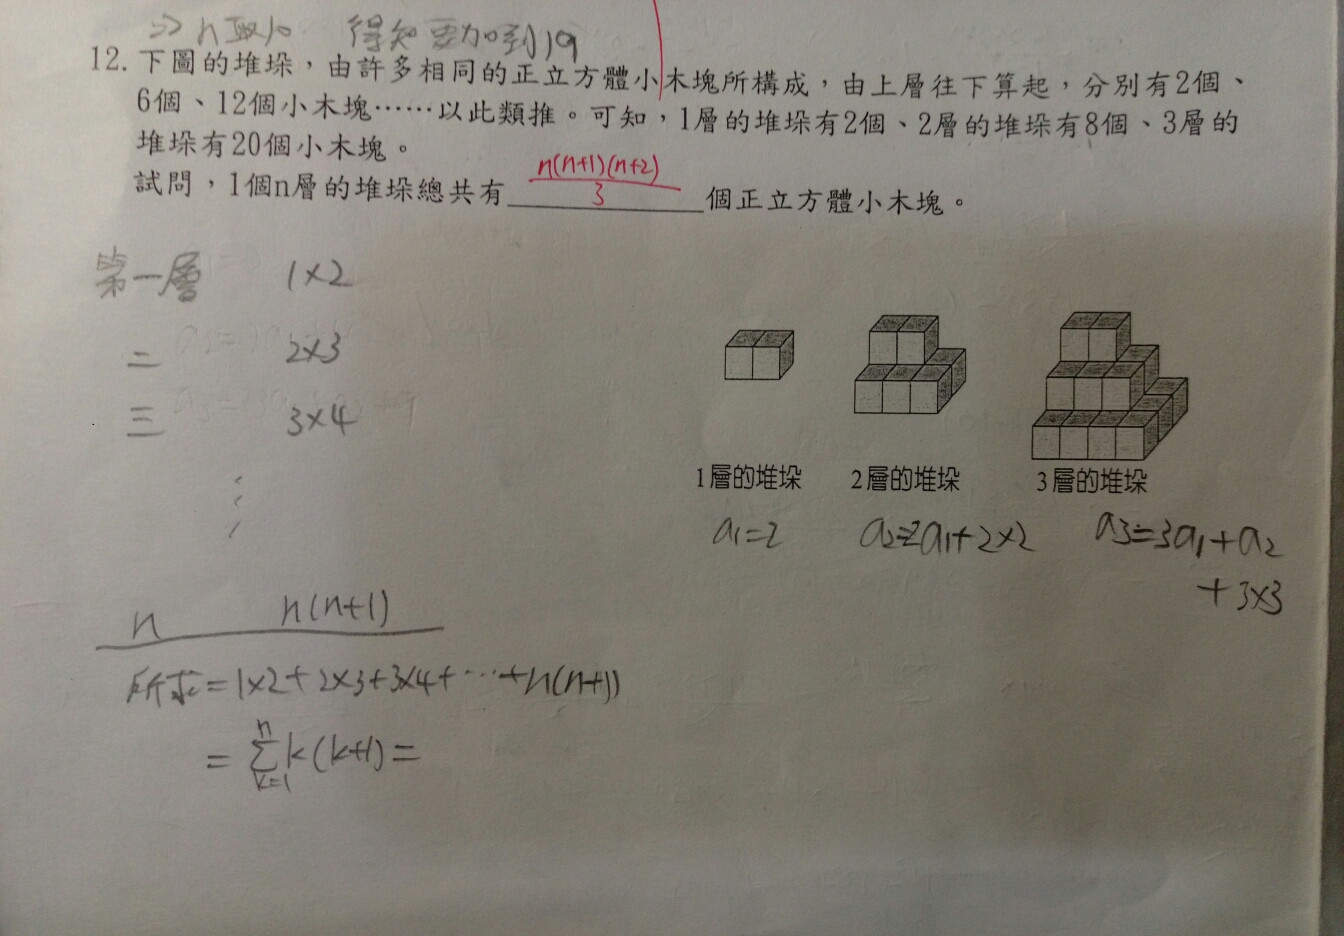 => n取10 得知要加到19
12. 下圖的堆垛，由許多相同的正立方體小木塊所構成，由上層往下算起，分別有2個、
6個、12個小木塊……以此類推。可知，1層的堆垛有2個、2層的堆垛有8個、3層的
堆垛有20個小木塊。
n(n+1)(n+2)
3
試問，1個n層的堆垛總共有＿＿＿＿＿＿個正立方體小木塊。
第一層 1×2
二 2×3
三 3×4
⋮
n n(n+1)
所求=1×2+2×3+3×4+…+n(n+1)
=∑k(k+1)=
n
k=1
1層的堆垛 2層的堆垛 3層的堆垛
a1=2 a2=2a1+2×2 a3=3a1+a2
+3×3